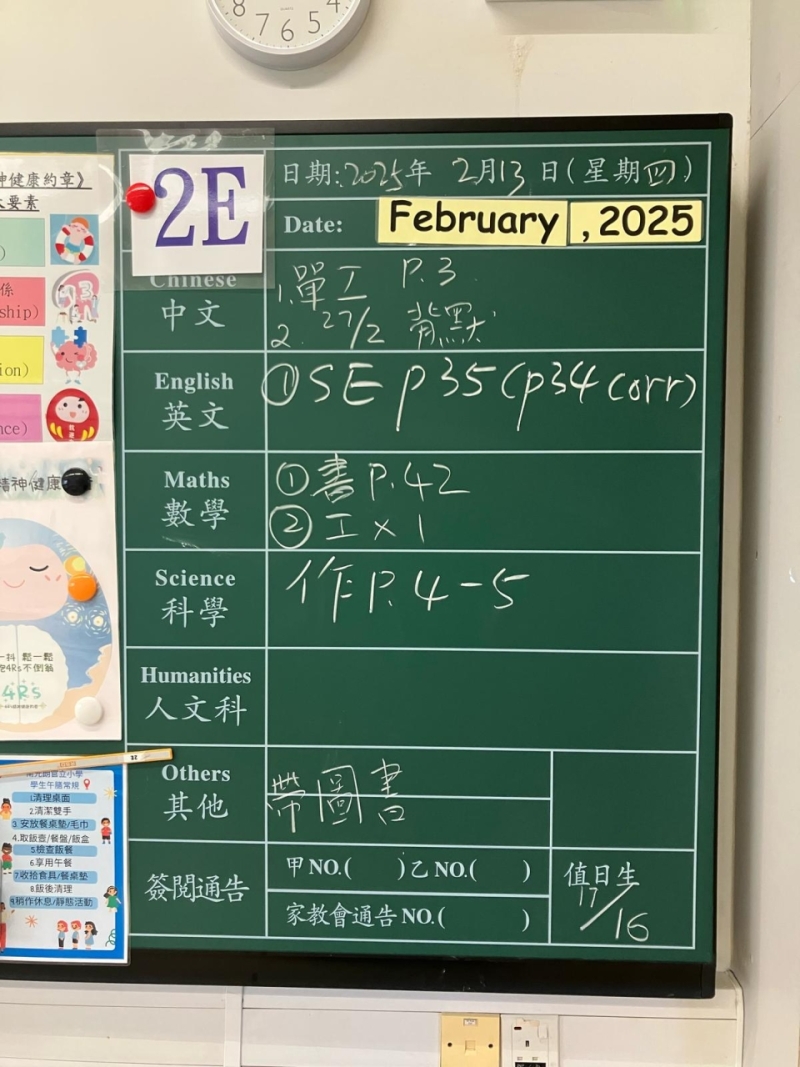 8 7 6 5 4
神健康約章》
要素
係
ship)
ion)
nce)
精神健康
一抖 鬆一鬆
4Rs不倒翁
4Rs
學生午膳常規
1清理桌面
2.清潔雙手
3.安放餐桌墊/毛巾
4.取飯壺/餐盤/飯盒
5檢查飯餐
6.享用午餐
7.收拾食具/餐桌墊
8.飯後清理
9.稍作休息/靜態活動
2E
日期:2025年 2月13日(星期四)
Date: February , 2025
Chinese
中文
1.單工 P.3
2. 27/2 背默
English
英文
①SE p35(p34 corr)
Maths
數學
①書P.42
②工×1
Science
科學
作P.4-5
Humanities
人文科
Others
其他
帶圖書
簽閱通告
甲NO.( )乙NO.( )
家教會通告NO.( )
值日生
17/16